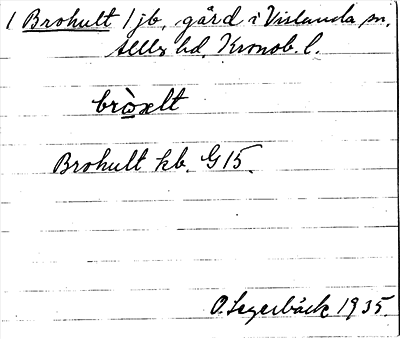 / Brohult / jb, gård i Vislanda sn,
Allbo hd, Kronob. l.
bròxlt
Brohult kb. G 15.
O. Segerbäck 1935.